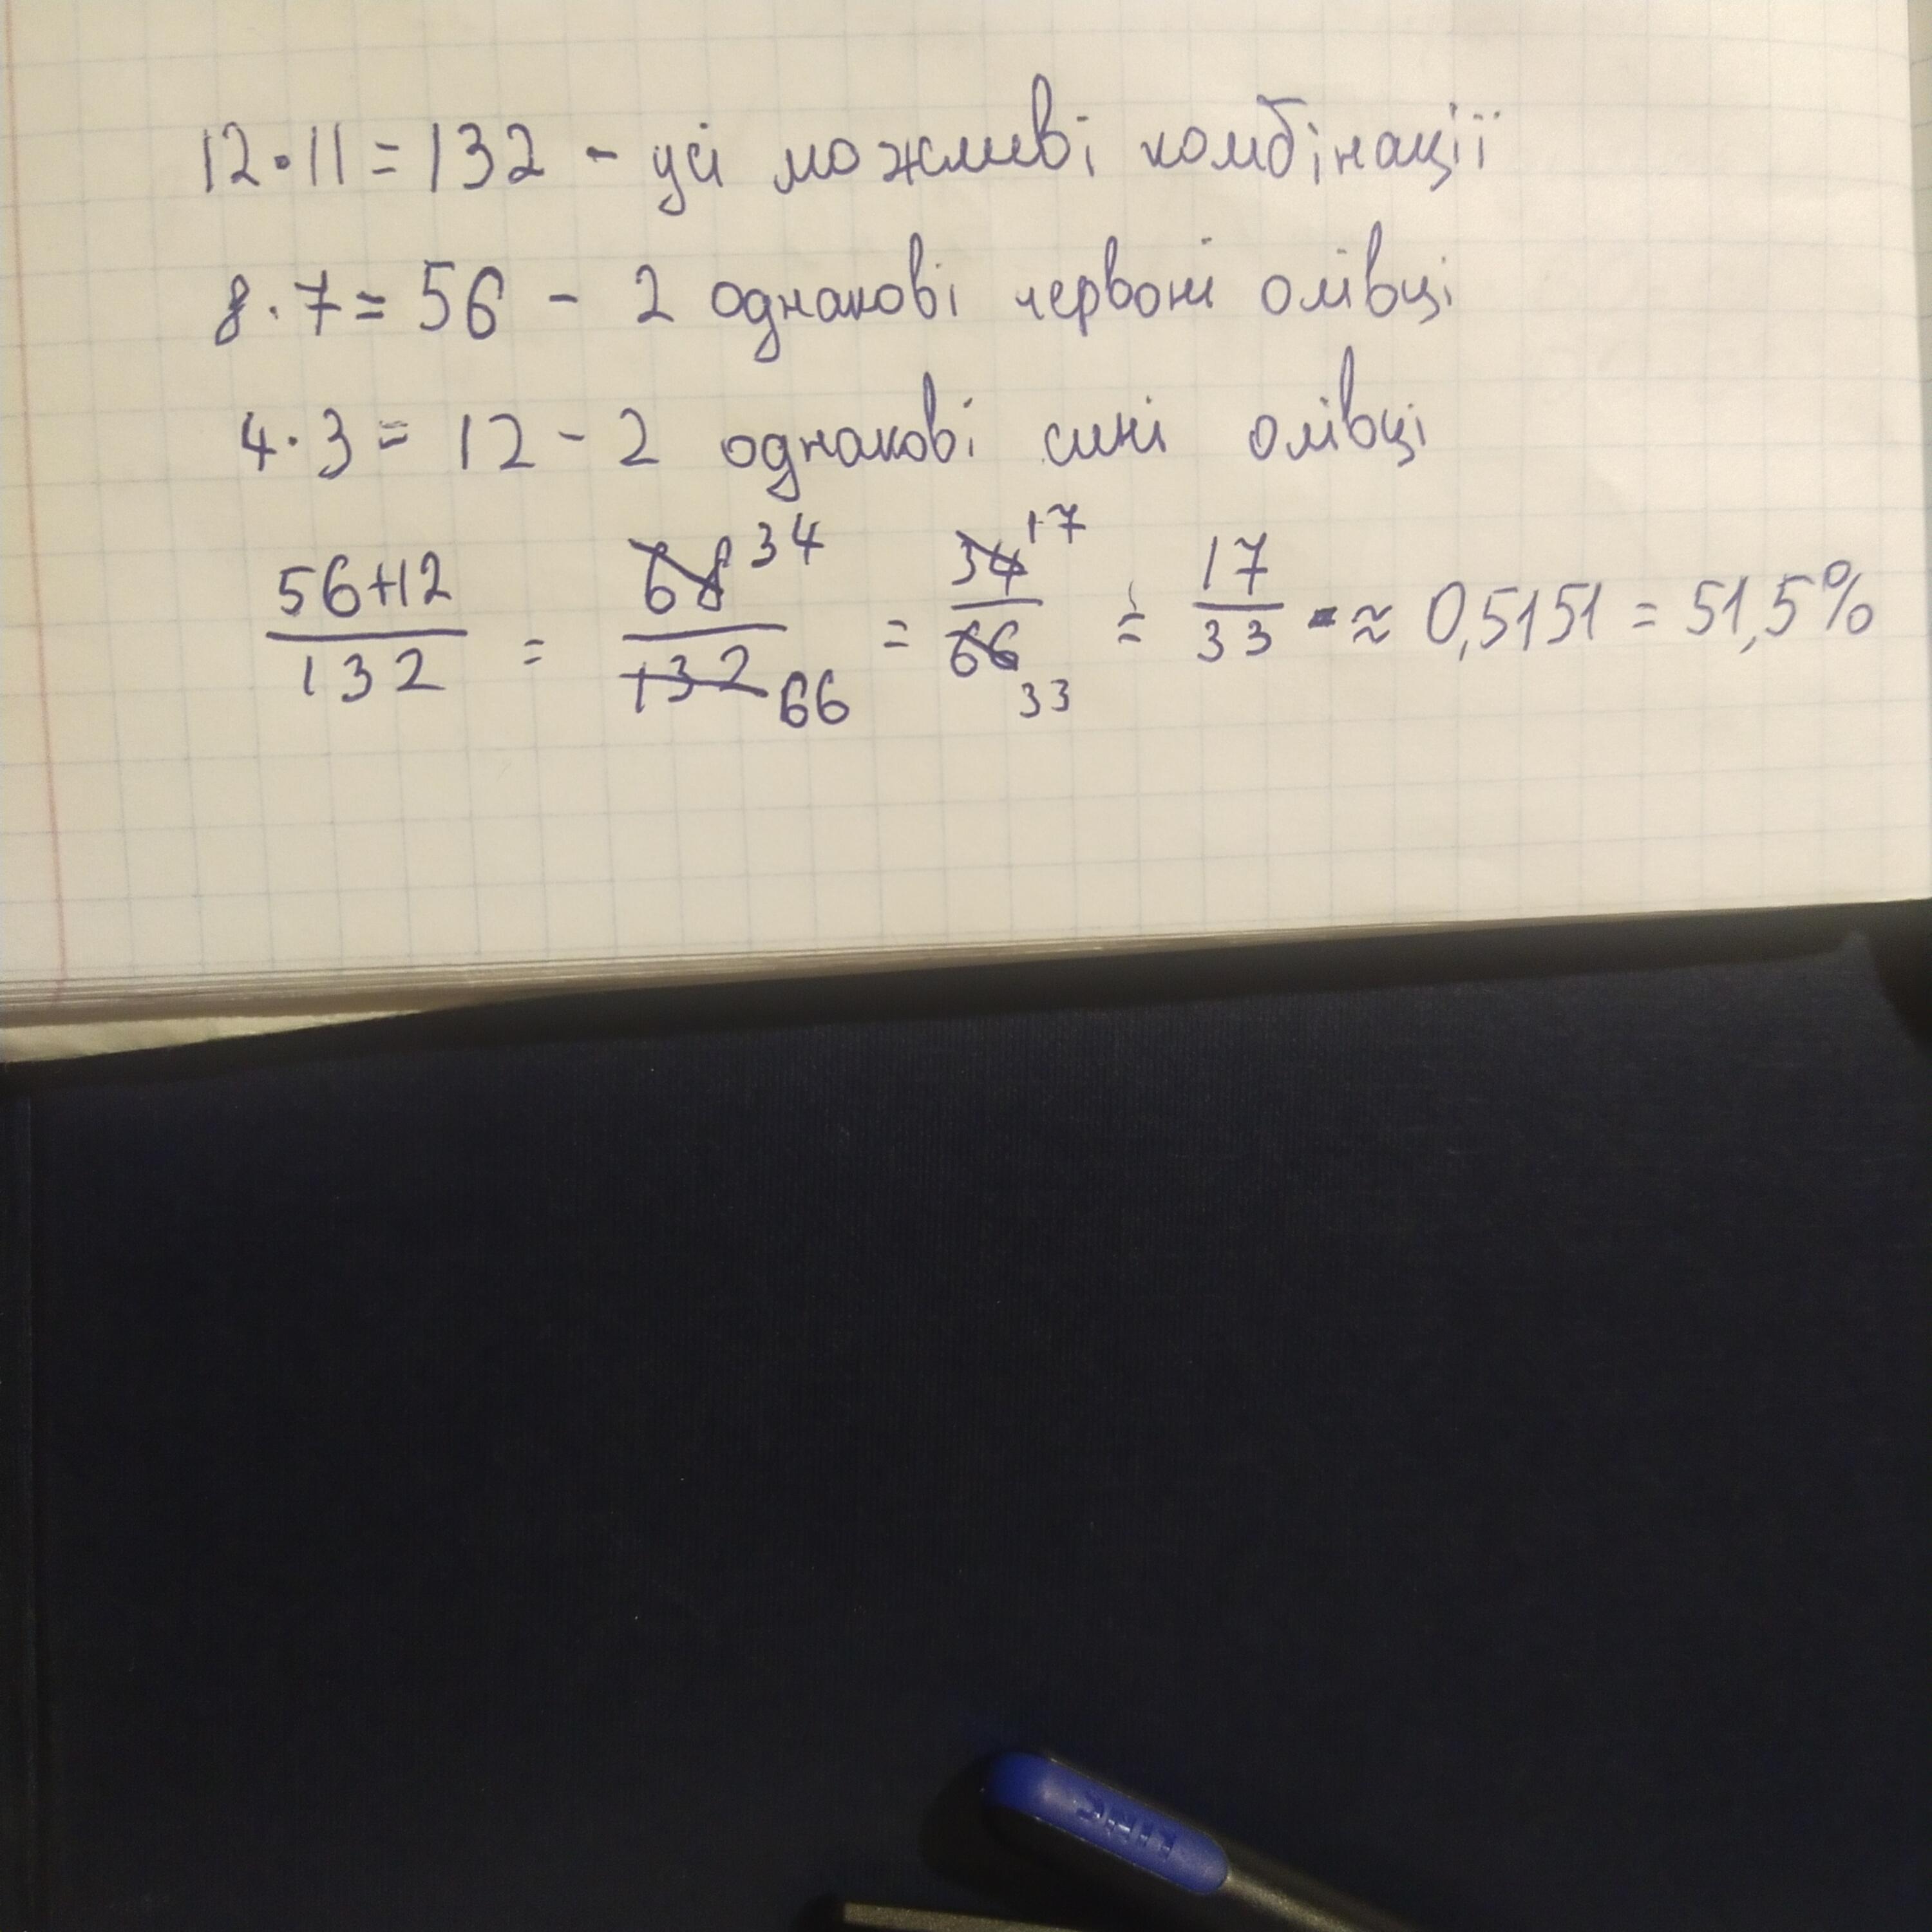 12·11=132 - усі можливі комбінації
8·7=56 - 2 однакові червоні олівці
4·3=12-2 однакові сині олівці
56+12/132 = 68 34/132 66 = 34 17/66 33 = 17/33 ≈ 0,5151 = 51,5%
LINC